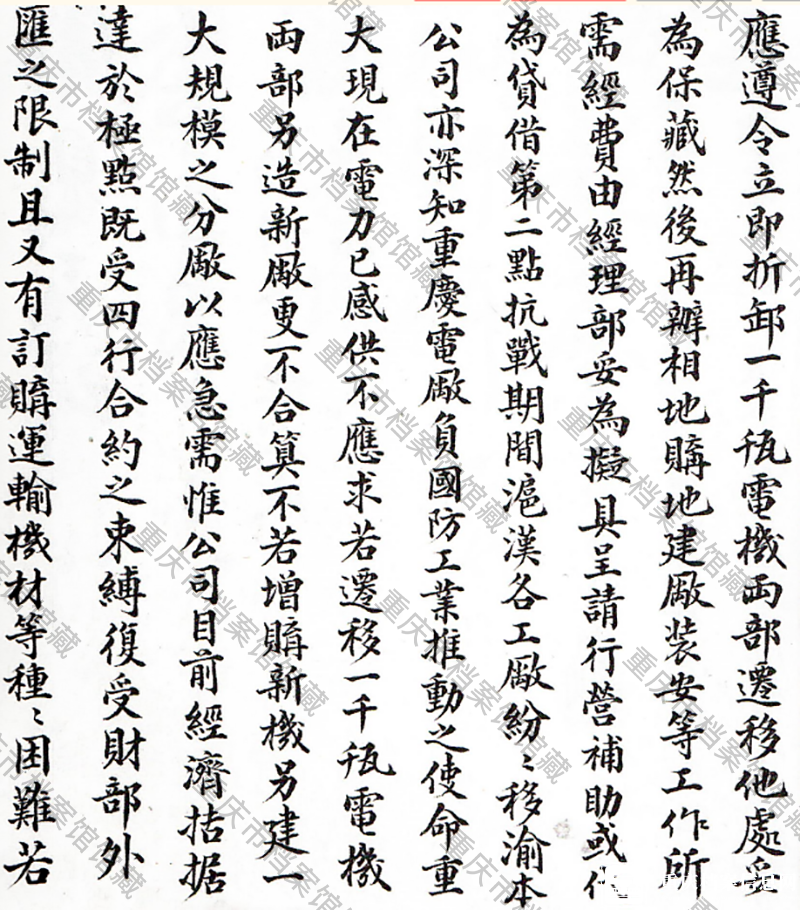 應遵令立即折卸一千瓩電機両部遷移他處妥
為保藏然後再辦相地購地建廠装安等工作所
需經費由經理部妥為擬具呈請行營補助或代
為貸借第二點抗戰期間滬漢各工廠紛〻移渝本
公司亦深知重慶電廠負國防工業推動之使命重
大現在電力已感供不應求若遷移一千瓩電機
両部另造新廠更不合算不若增購新機另建一
大規模之分廠以應急需惟公司目前經濟拮据
達於極點既受四行合約之束縛復受財部外
匯之限制且又有訂購運輸機材等種〻困難若
重庆市档案馆馆藏